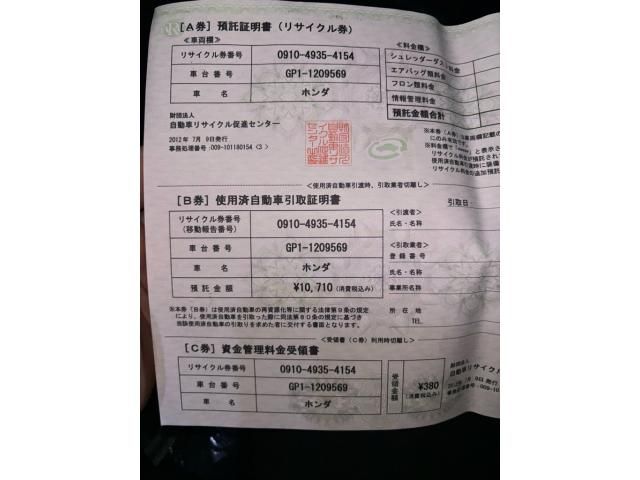 [A券] 預託証明書(リサイクル券)
<車両欄>
リサイクル券番号 0910-4935-4154
車台番号 GP1-1209569
車 名 ホンダ
財団法人
自動車リサイクル促進センター
2012年 7月 9日発行
事務処理番号:009-101180154 <3>
<料金欄>
シュレッダーダスト料金
エアバッグ類料金
フロン類料金
情報管理料金
預託金額合計
<使用済自動車引渡時、引取業者切離し>
[B券] 使用済自動車引取証明書
引取日:
リサイクル券番号
(移動報告番号) 0910-4935-4154
車台番号 GP1-1209569
車 名 ホンダ
預託金額 ¥10,710 (消費税込み)
<引渡者>
氏名・名称
<引取業者>
登録番号
氏名・名称
事業所名称
所在地
TEL
※本券(B券)は使用済自動車の再資源化等に関する法律第9条の規定
により、使用済自動車を引取った際に同法第80条の規定に基づき
当該使用済自動車の引取りを求めた者に交付する書面となります。
<受領書(C券)利用時切離し>
[C券] 資金管理料金受領書
リサイクル券番号 0910-4935-4154
車台番号 GP1-1209569
車 名 ホンダ
受領金額 ¥380
(消費税込み)
財団法人
自動車リサイクル
2012年 7月 9日発行
事務処理番号:009-101